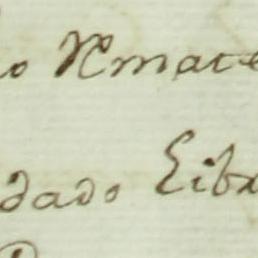 lo Remate
dado Libr